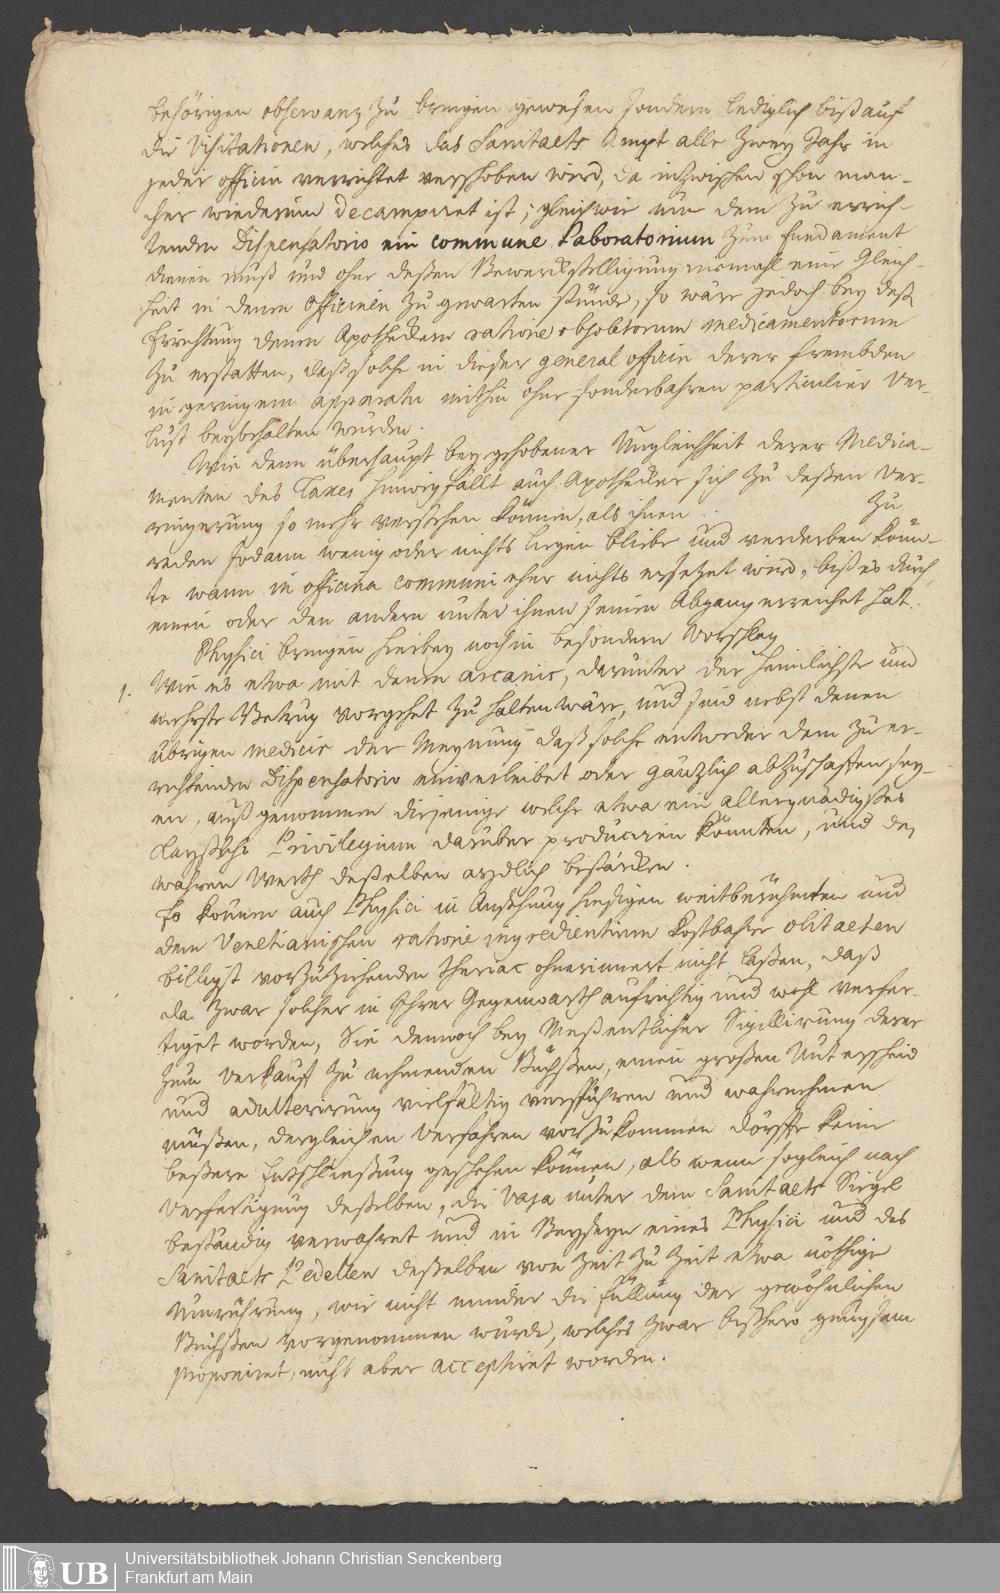 behörigen observanz zu bringen gewesen sondern lediglich biß auf
die Visitationen, welches das Sanitaets Ampt alle zwey Jahr in
jeder officin verrichtet verschoben wird, da inzwischen schon man-
cher wiederum decampiret ist; gleichwie nun dem zu errich-
tenden Dispensatorio ein commune Laboratorium zum fundament
dienen muß und ohne deßen Bewerckstelligung niemahl eine Gleich-
heit in denen Officinen zu gewarten stünde, so wäre jedoch bey deß
Errichtung denen Apotheckern ratione obsoletorum medicamentorum
zu erstatten, daß solche in dieser general officin derer frembden
in geringem apparatu mithin ohne sonderbahren particulier Ver-
lust beybehalten würden.
Wie denn überhaupt bey gehobener Ungleichheit derer Medica-
menten des Taxes hinweg fällt auch Apothecker sich zu deßen Ver-
ringerung so mehr verstehen können, als ihnen zu
reden sodann wenig oder nichts liegen bliebe und verderben könn-
te wann in officina communi eher nichts ersetzet wird, biß es durch
einen oder den andern unter ihnen seinen Abgang erreichet hat.
Physici bringen hierbey noch in besondern Vorschlag
1. Wie es etwa mit denen arcanis, darunter der heimlichste und
mehrste Betrug vorgehet zu halten wäre, und sind nebst denen
übrigen medicis der Meynung daß solche entweder dem zu er-
richtenden Dispensatorio einverleibet oder gäntzlich abzuschaffen sey-
en, auß genommen diejenige welche etwa ein allergnädigstes
Kayserliche Privilegium darüber produciren könnten, und den
wahren Werth deßelben aydlich bestärcken.
Es können auch Physici in Ansehung hiesigen weitberühmten und
dem Venetianischen ratione ingredientium kostbahrer olitaeten
billigst vorzuziehenden Theriac ohnerinnert nicht laßen, daß
da zwar solcher in Ihrer Gegenwarth aufrichtig und wohl verfer-
tiget worden, Sie dennoch bey Meßentlicher Sigillirung derer
zum Verkauff zu nehmenden Büchßen, einen großen Unterscheid
und adulterirung vielfältig verspühren und wahrnehmen
müßen, dergleichen Verfahren vorzukommen dörffte keine
beßere Entschließung geschehen können, als wenn sogleich nach
Verfertigung deßelben, die Vasa unter dem Sanitaets Siegel
beständig verwahret und in Beyseyn eines Physici und des
Sanitaets Pedellen deßelben von Zeit zu Zeit etwa nöthige
Umrührung, wie nicht minder die Füllung der gewöhnlichen
Büchßen vorgenommen würde, welches zwar bißhero genugsam
proponiret, nicht aber acceptiret worden.
UB
Universitätsbibliothek Johann Christian Senckenberg
Frankfurt am Main